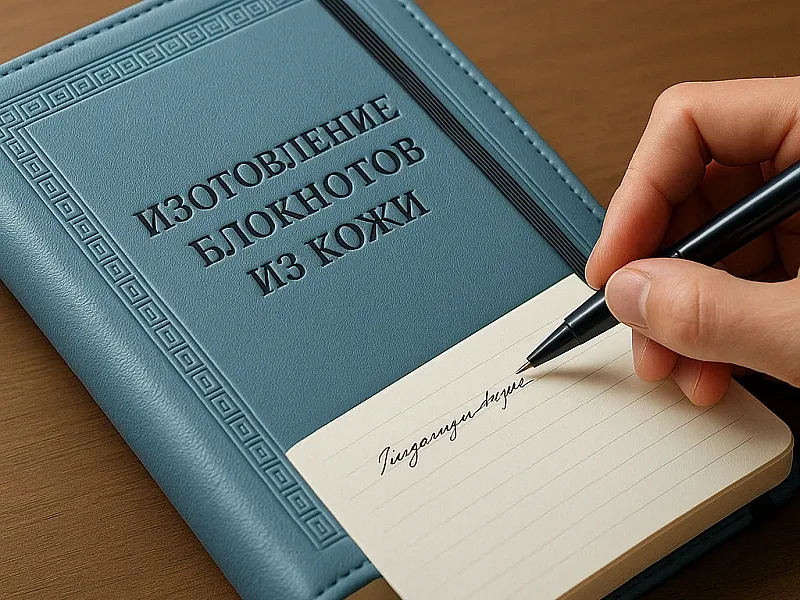 ИЗОТОВЛЕНИЕ
БЛОКНОТОВ
ИЗ КОЖИ